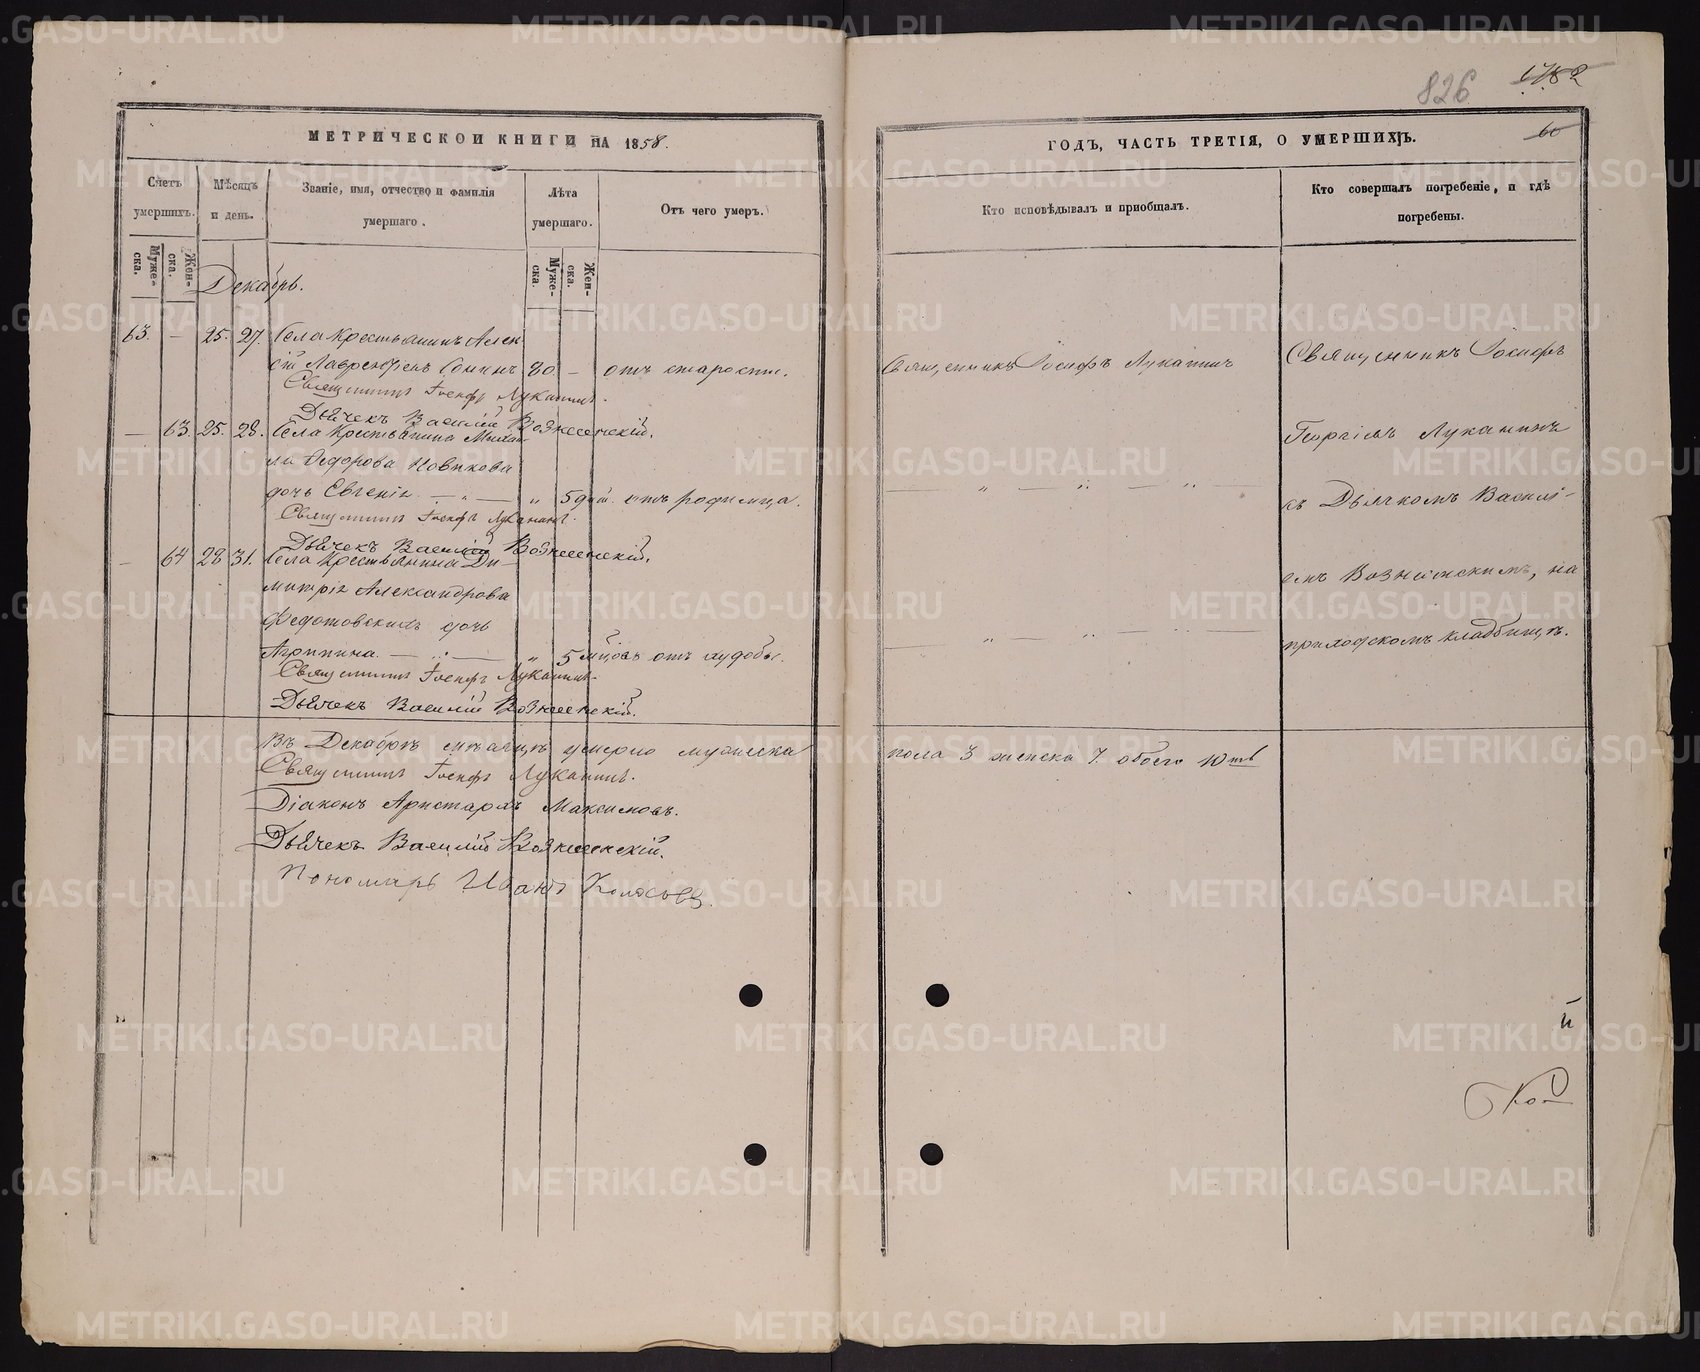 826
1782
60
МЕТРИЧЕСКОЙ КНИГИ НА 1858.
ГОДЪ, ЧАСТЬ ТРЕТІЯ, О УМЕРШИХЪ.
Счетъ умершихъ.
Муже-
ска.
Жен-
ска.
Мѣсяцъ и день.
Званіе, имя, отчество и фамилія
умершаго.
Лѣта
умершаго.
Муже-
ска.
Жен-
ска.
Отъ чего умеръ.
Кто исповѣдывалъ и пріобщалъ.
Кто совершалъ погребеніе, и гдѣ
погребены.
Декабрь.
63. — 25. 27. Села Крестьянинъ Алек
сій Лаврентьевъ Сонинъ 80 — отъ старости.
Священникъ Іосифъ Луканинъ.
Дьячекъ Василій Вознесенскій.
— 63. 25. 28. Села Крестьянина Михаи
ла Ѳедорова Новикова
дочь Евгенія — „ — „ 5 дней. отъ родимца.
Священникъ Іосифъ Луканинъ.
Дьячекъ Василій Вознесенскій.
— 64 28 31. Села Крестьянина Ди-
митрія Александрова
Федотовскихъ дочь
Агрипина. — „ — „ 5 мцовъ отъ худобы.
Священникъ Іосифъ Луканинъ.
Дьячекъ Василій Вознесенскій.
Священникъ Іосифъ Луканинъ
Священникъ Іосифъ
Георгіевъ Луканинъ
съ Дьячкомъ Василі-
емъ Вознесенскимъ, на
приходскомъ кладбищѣ.
Въ Декабрѣ мѣсяцѣ умерло мужеска
пола 3 женска 7 обоего 10ть
Священникъ Іосифъ Луканинъ.
Діаконъ Аристархъ Максимовъ.
Дьячекъ Василій Вознесенскій.
Пономарь Иванъ
METRIKI.GASO-URAL.RU